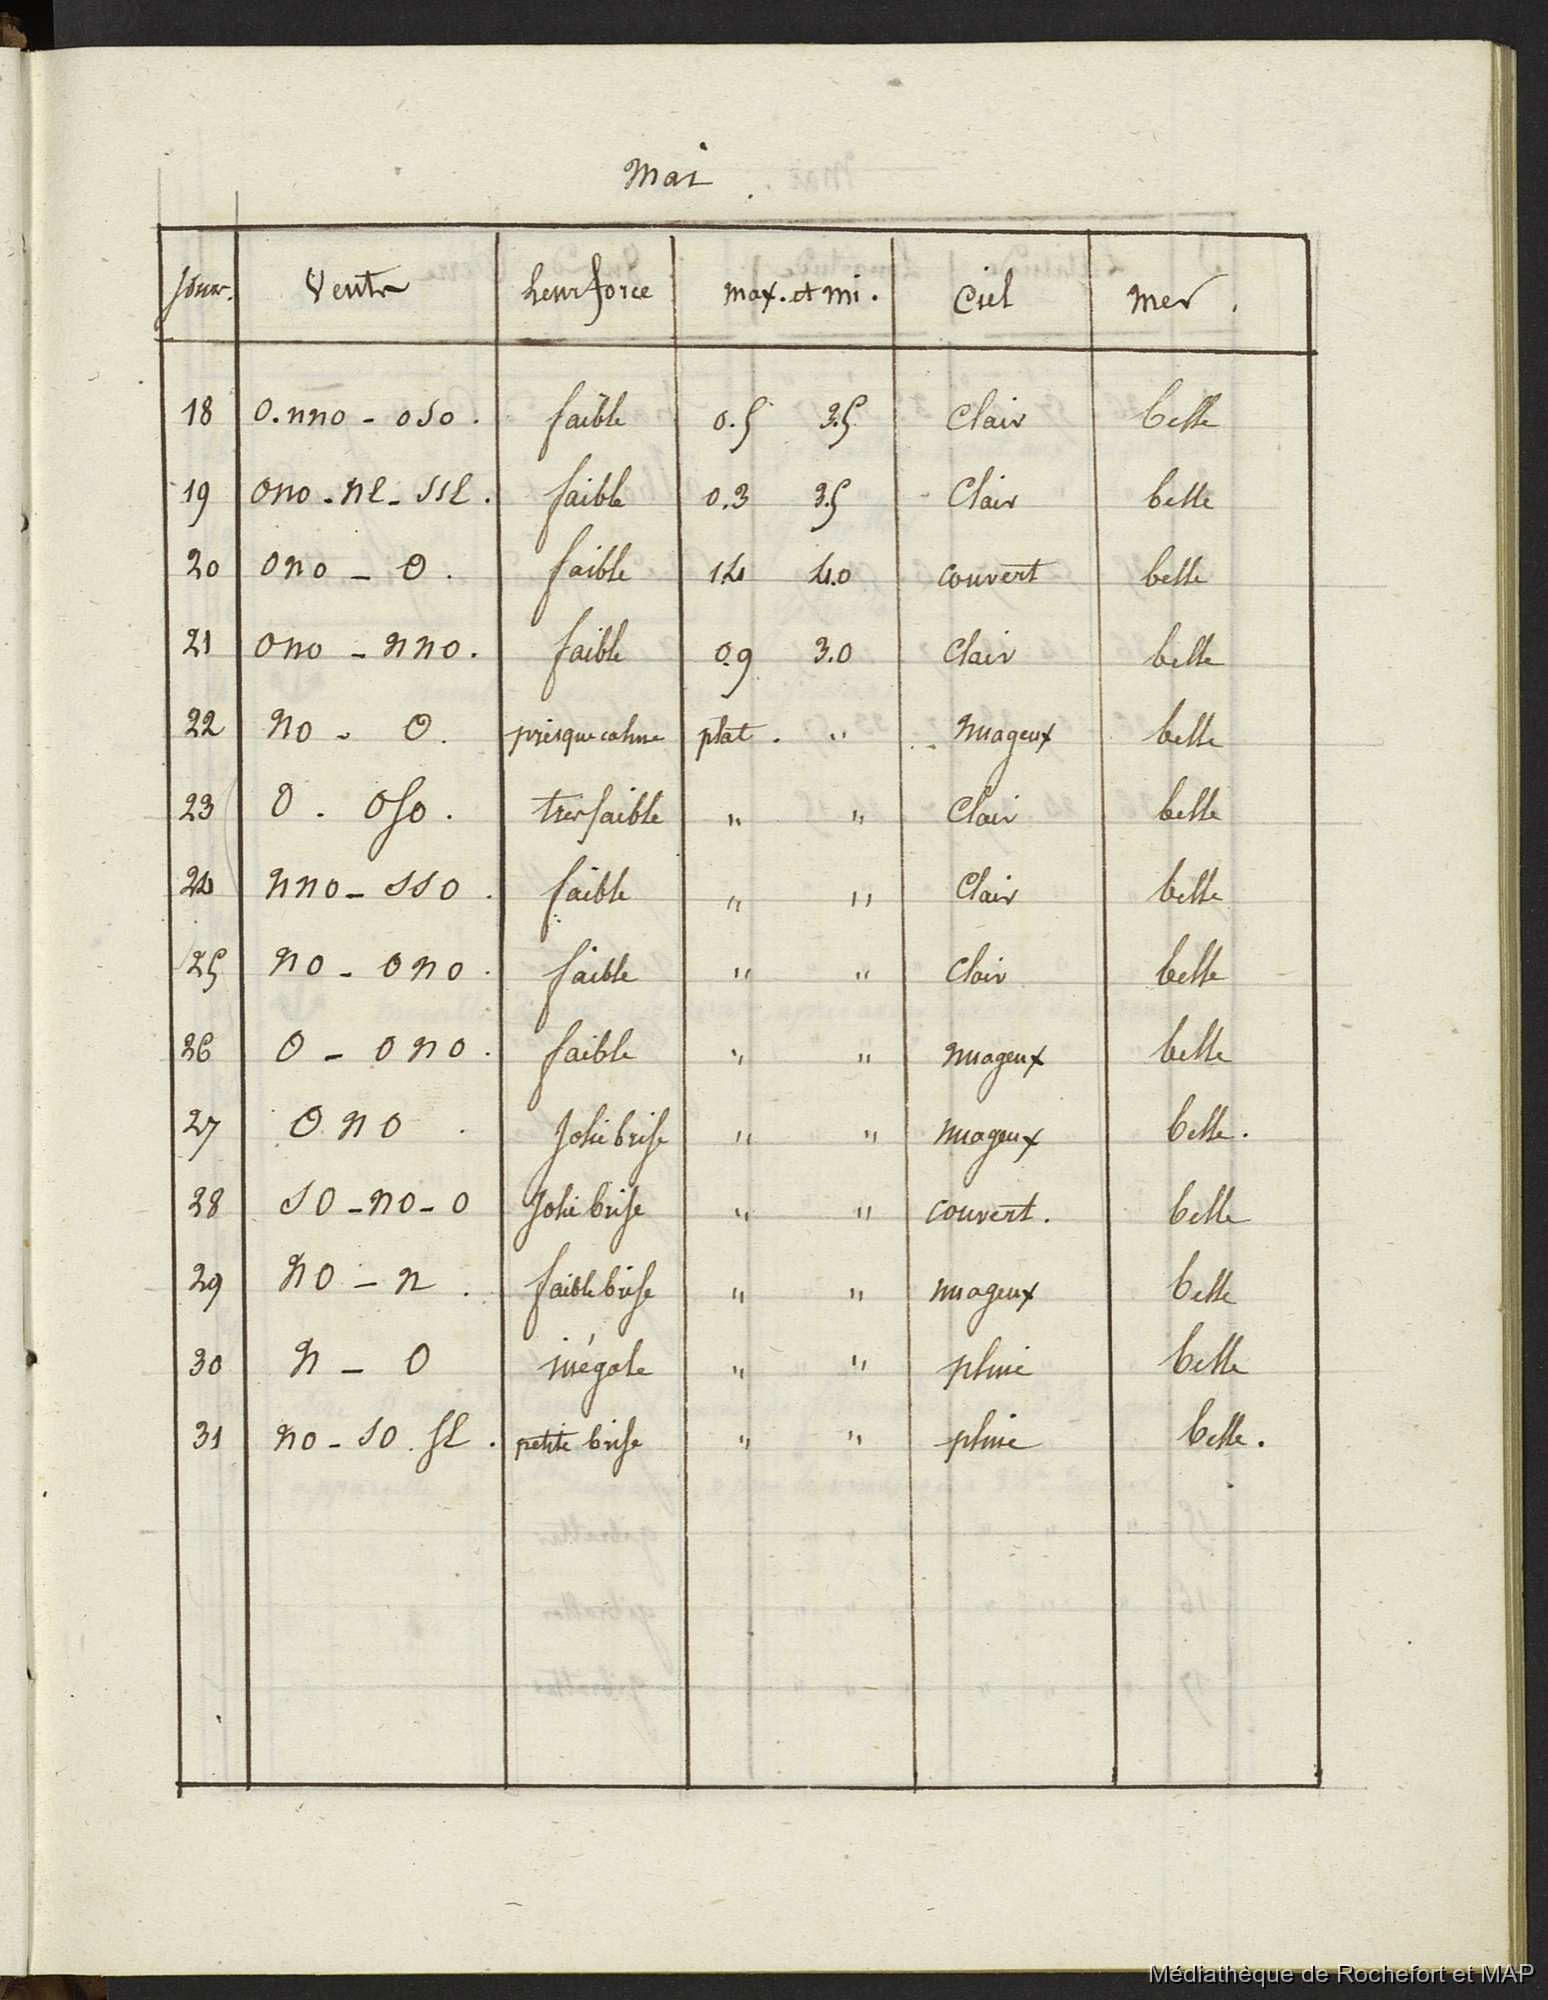 Mai
Jours. Vents leur force max. et mi. Ciel mer.
18 O.nno - oso. faible 0.5 3.5 Clair belle
19 ono - ne - sse. faible 0.3 3.5 Clair belle
20 ono - O. faible 14 4.0 couvert belle
21 ono - nno. faible 0.9 3.0 Clair belle
22 no - O. presque calme plat. " nuageux belle
23 O. oso. tres faible " " Clair belle
24 nno - sso. faible " " Clair belle
25 no - ono. faible " " Clair belle
26 O - ono. faible " " nuageux belle
27 ono. Jolie brise " " nuageux belle.
28 so - no - o Jolie brise " " couvert. belle
29 no - n. faible brise " " nuageux belle
30 n - O inégale " " pluie belle
31 no - so. se. petite brise " " pluie belle.
Médiathèque de Rochefort et MAP